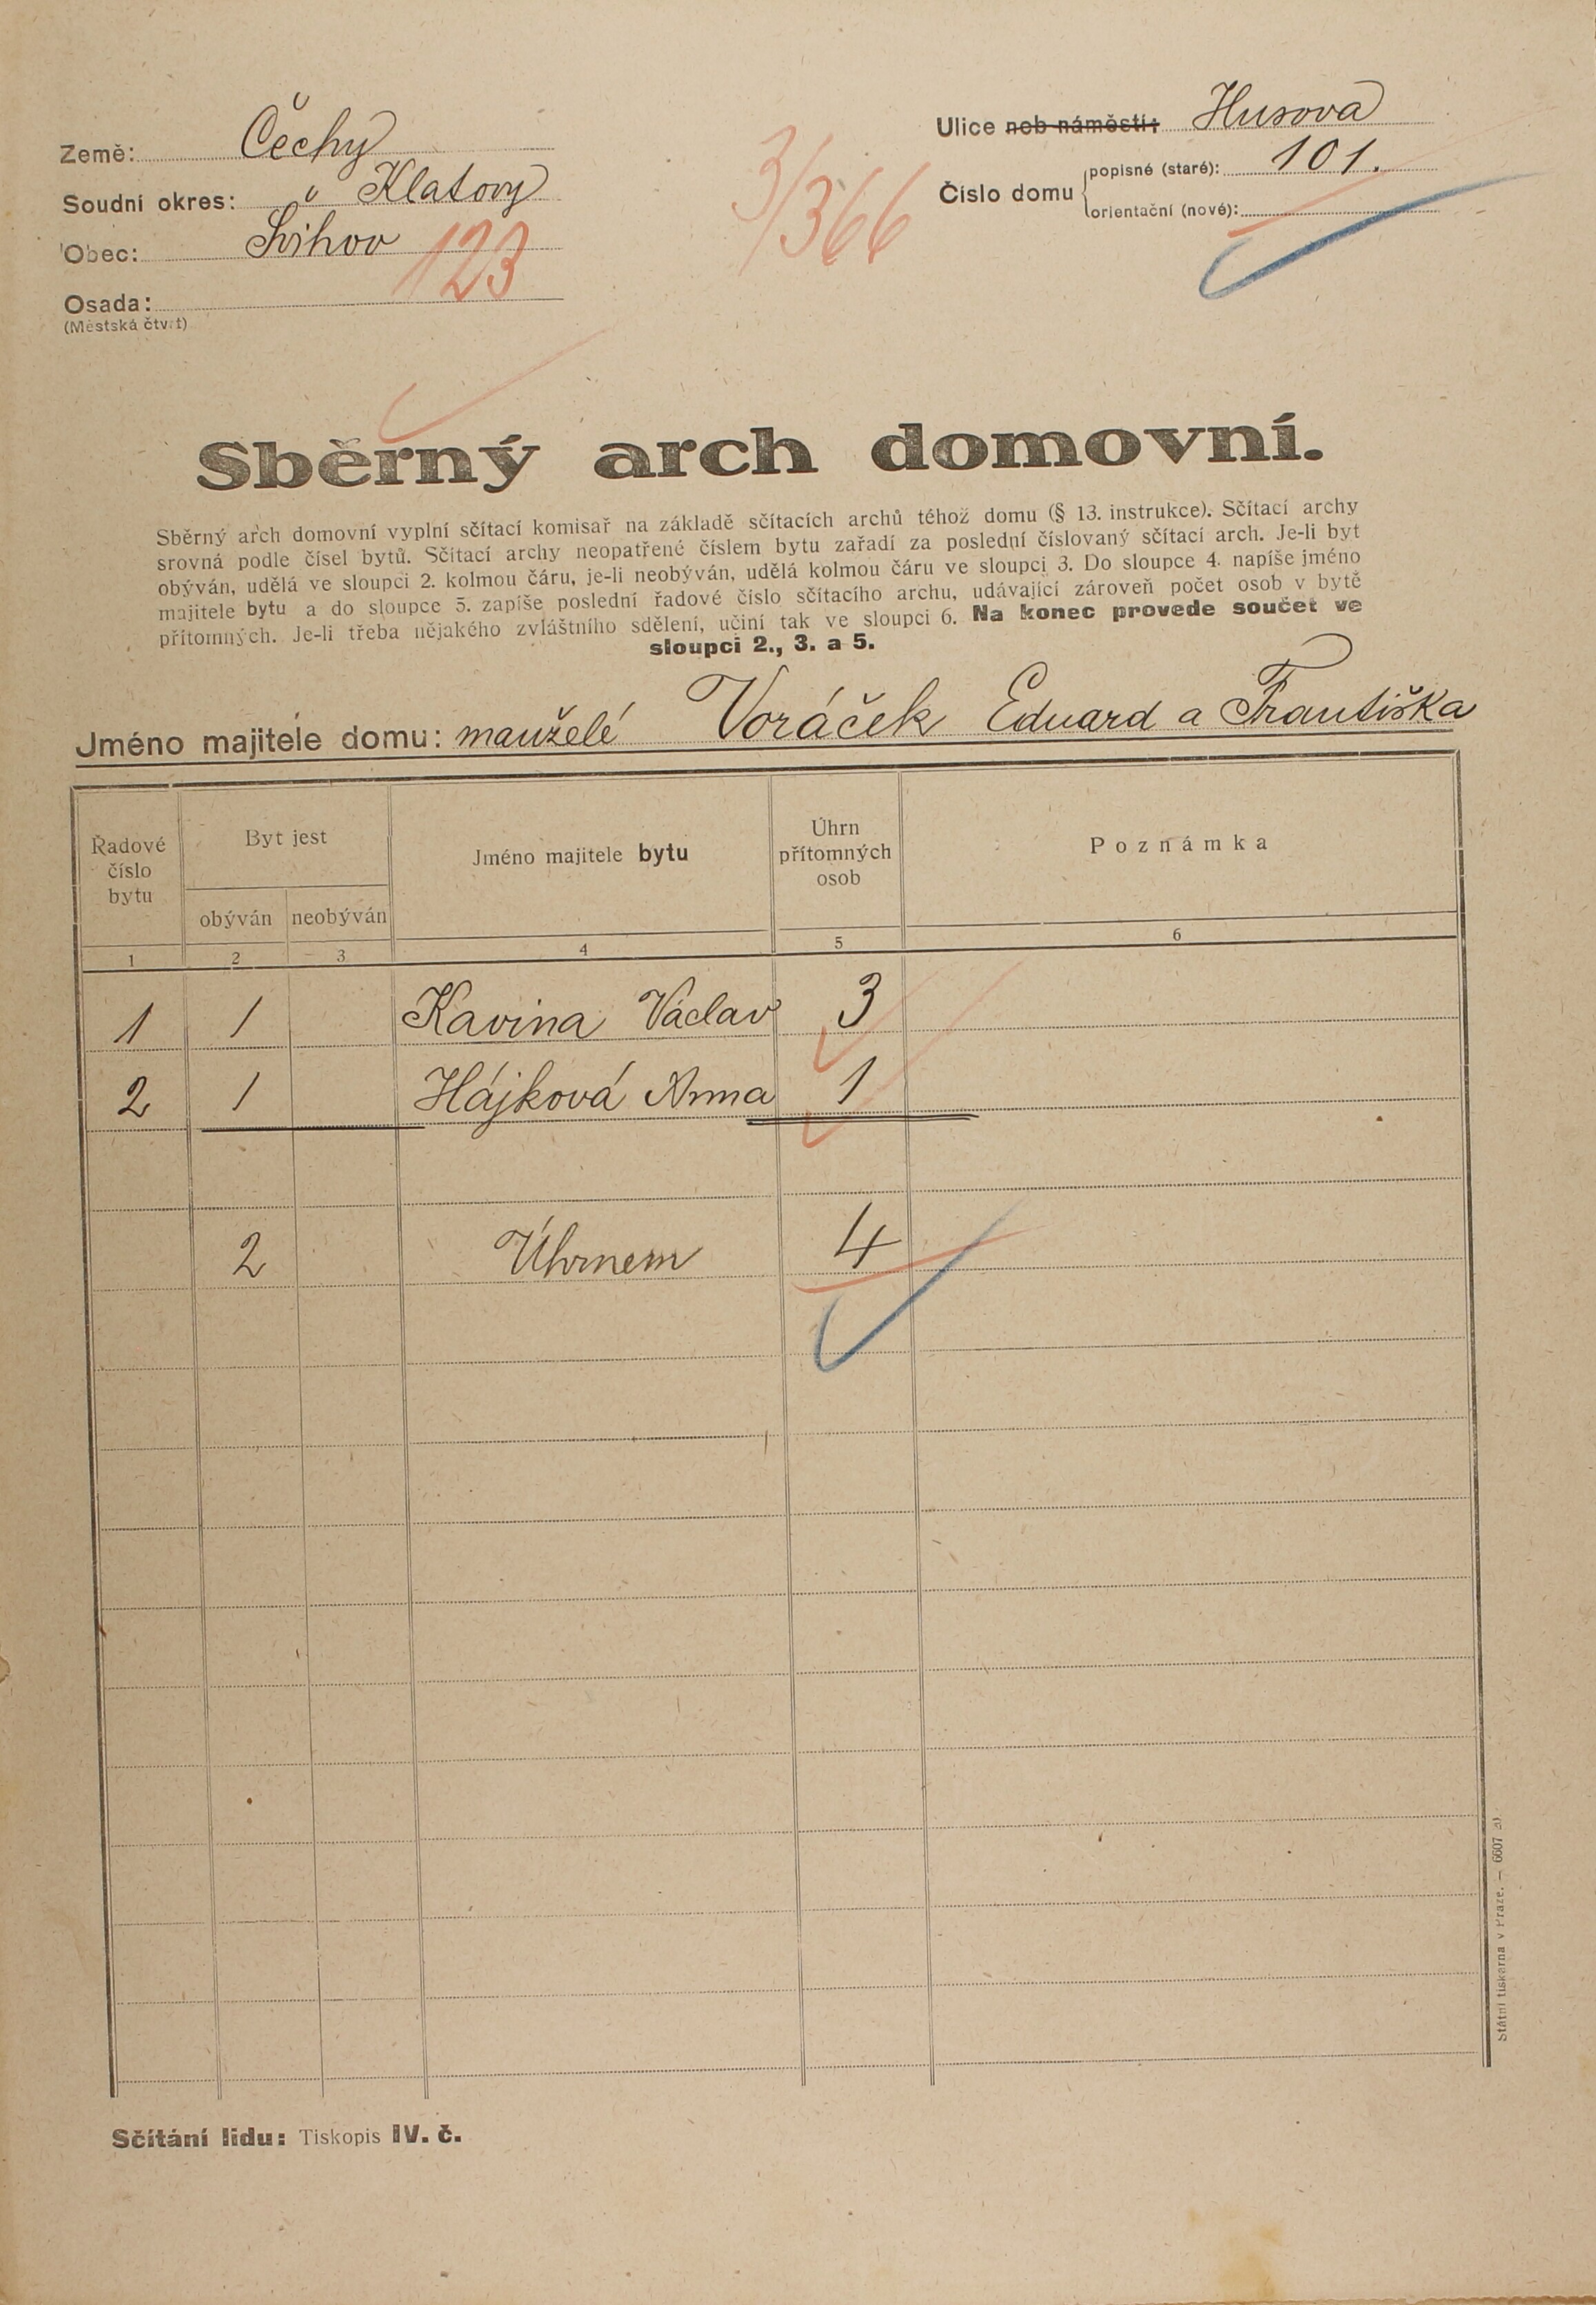 Země: Čechy
Soudní okres: Klatovy
Obec: Švihov
123
Osada:
(Městská čtvrt)
3/366
Ulice neb náměstí: Husova
Číslo domu
popisné (staré): 101.
orientační (nové):
Sběrný arch domovní.
Sběrný arch domovní vyplní sčítací komisař na základě sčítacích archů téhož domu (§ 13. instrukce). Sčítací archy
srovná podle čísel bytů. Sčítací archy neopatřené číslem bytu zařadí za poslední číslovaný sčítací arch. Je-li byt
obýván, udělá ve sloupci 2. kolmou čáru, je-li neobýván, udělá kolmou čáru ve sloupci 3. Do sloupce 4. napíše jméno
majitele bytu a do sloupce 5. zapíše poslední řadové číslo sčítacího archu, udávající zároveň počet osob v bytě
přítomných. Je-li třeba nějakého zvláštního sdělení, učiní tak ve sloupci 6. Na konec provede součet ve
sloupci 2., 3. a 5.
Jméno majitele domu: manželé Voráček Eduard a Františka
Řadové číslo bytu
Byt jest
obýván neobýván
Jméno majitele bytu
Úhrn přítomných osob
Poznámka
1 2 3 4 5 6
1 1 Kavina Václav 3
2 1 Hájková Anna 1
2 Úhrnem 4
Státní tiskárna v Praze. — 6607 20
Sčítání lidu: Tiskopis IV. č.